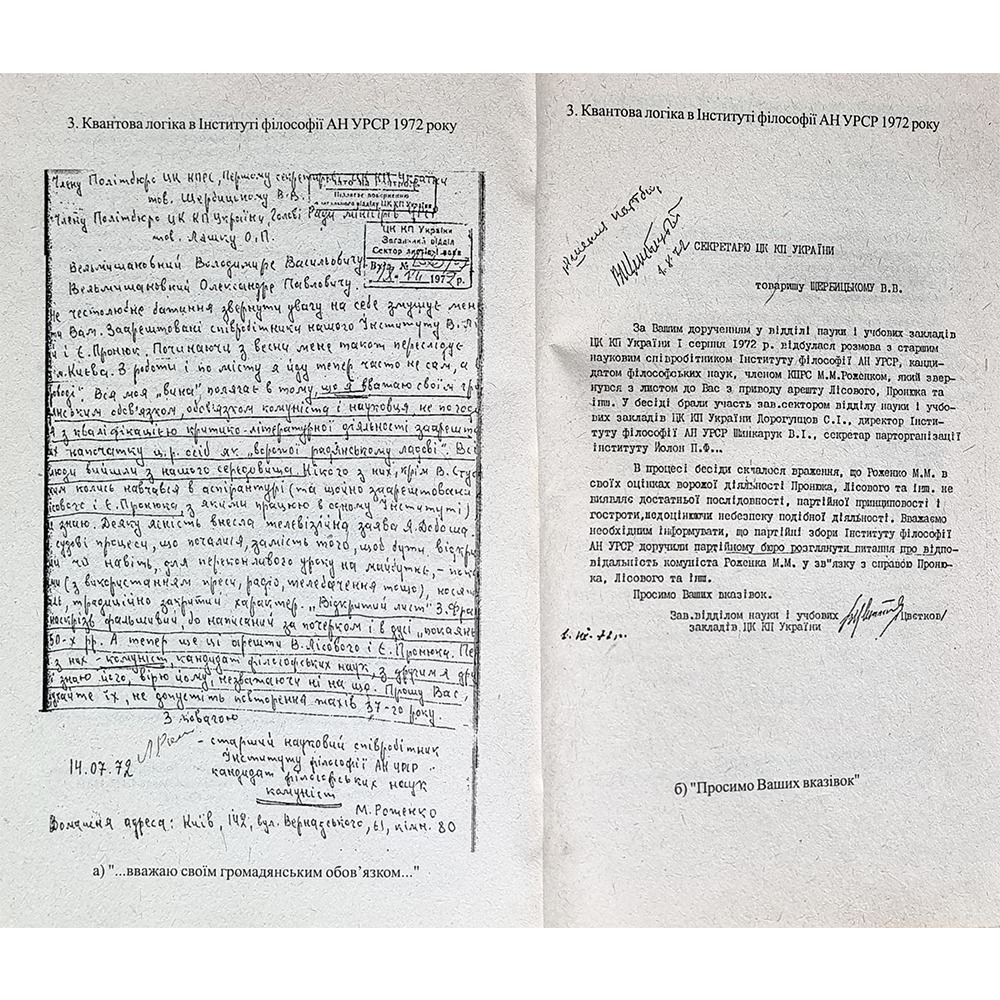 3. Квантова логіка в Інституті філософії АН УРСР 1972 року
Члену Політбюро ЦК КПРС, Першому секретарю ЦК КП України
тов. Щербицькому В.В.
Члену Політбюро ЦК КП України, Голові Ради Міністрів УРСР
тов. Ляшку О.П.
ЦК КП України
Загальний відділ
Сектор
Вхід. №
1972 р.
Вельмишановний Володимире Васильовичу
Вельмишановний Олександре Павловичу.
не честолюбне бажання звернути увагу на себе змушує мене
Вам. Заарештовані співробітники нашого Інституту В.Лі
й і Є.Пронюк. Починаючи з весни мене також переслідує
м.Києва. З роботи і по місту я йду тепер часто не сам, а
Вся моя „вина" полягає в тому, що я вважаю своїм гро
обов'язком, обов'язком комуніста і науковця, не пого
я з кваліфікацією критико-літературної діяльності заарешт
напочатку ц.р. осіб як „ворожої радянському ладові". Всі
люди вийшли з нашого середовища. Нікого з них, крім В.Сту
колись навчався в аспірантурі (та щойно заарештовані
і Є.Пронюка, з якими працюю в одному Інституті)
знаю. Деяку ясність внесла телевізійна заява Я.Добоша
судові процеси, що почалися, замість того, щоб бути відкри
чи навіть, для переконливого уроку на майбутнє, – пока
(з використанням преси, радіо, телебачення тощо), носять
традиційно закритий характер. „Відкритий лист" З.Фран
наскрізь фальшивий, бо написаний за почерком і в дусі „покаянь
30-х рр. А тепер ще ці арешти В.Лісового і Є.Пронюка. Пе
з них – комуніст, кандидат філософських наук, з другим я дру
і знаю його, вірю йому, незважаючи ні на що. Прошу Вас,
їх, не допустіть повторення жахів 37-го року.
З повагою
14.07.72
- старший науковий співробітник
Інституту філософії АН УРСР
кандидат філософських наук
комуніст
М.Роженко
Домашня адреса: Київ, 142, вул. Вернадського, 61, кімн. 80
а) "...вважаю своїм громадянським обов’язком..."
3. Квантова логіка в Інституті філософії АН УРСР 1972 року
СЕКРЕТАРЮ ЦК КП УКРАЇНИ
товаришу ЩЕРБИЦЬКОМУ В.В.
За Вашим дорученням у відділі науки і учбових закладів
ЦК КП України І серпня 1972 р. відбулася розмова з старшим
науковим співробітником Інституту філософії АН УРСР, канди-
датом філософських наук, членом КПРС М.М.Роженком, який звер-
нувся з листом до Вас з приводу арешту Лісового, Пронюка та
інш. У бесіді брали участь зав.сектором відділу науки і учбо-
вих закладів ЦК КП України Дорогунцов С.І., директор Інсти-
туту філософії АН УРСР Шинкарук В.І., секретар парторганізації
інституту Йолон П.Ф...
В процесі бесіди склалося враження, що Роженко М.М. в
своїх оцінках ворожої діяльності Пронюка, Лісового та інш. не
виявляє достатньої послідовності, партійної принциповості і
гостроти,недооцінюючи небезпеку подібної діяльності. Вважаємо
необхідним інформувати, що партійні збори Інституту філософії
АН УРСР доручили партійному бюро розглянути питання про відпо-
відальність комуніста Роженка М.М. у зв"язку з справою Проню-
ка, Лісового та інш.
Просимо Ваших вказівок.
Зав.відділом науки і учбових /Цвєтков/
закладів ЦК КП України
б) "Просимо Ваших вказівок"